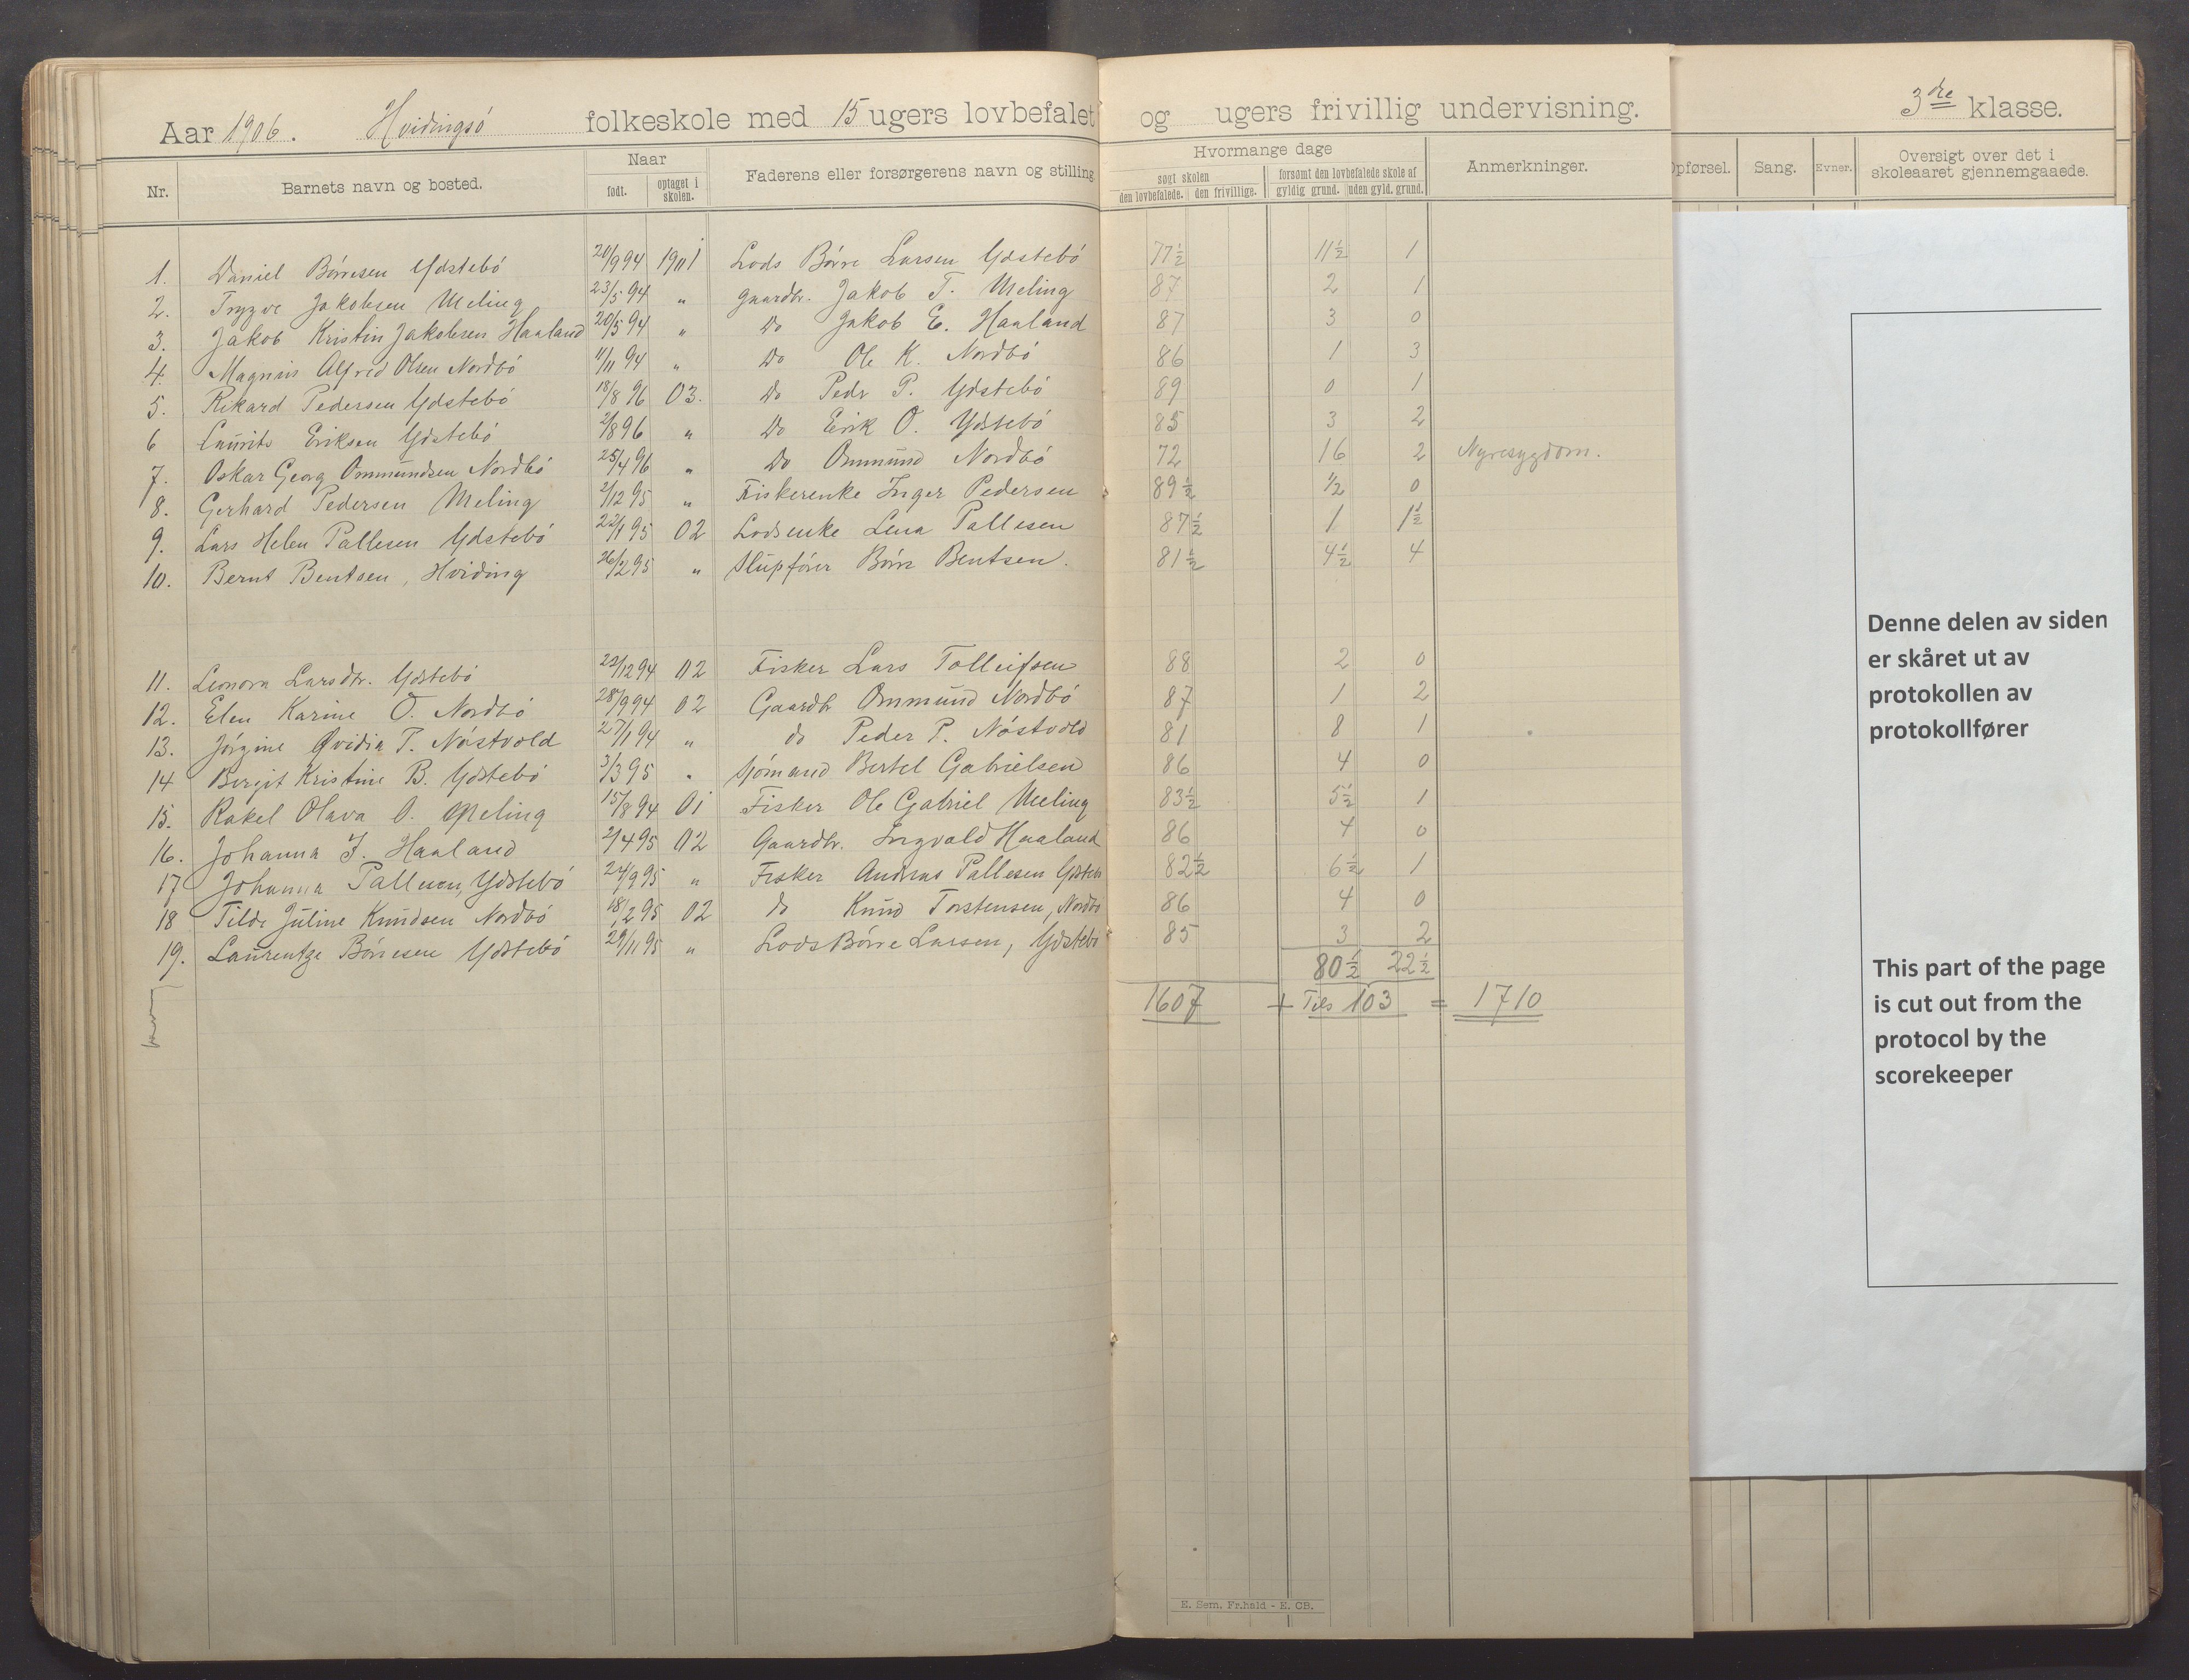 Aar 1906. Hvidingsö folkeskole med 15 ugers lovbefalet og ugers frivillig undervisning. 3dre klasse.
Nr. Barnets navn og bosted. Naar Faderens eller forsørgerens navn og stilling Hvormange dage Anmerkninger. Opførsel. Sang. Evner. Oversigt over det i
født. optaget i skolen. søgt skolen forsømt den lovbefalede skole af skoleaaret gjennemgaaede.
den lovbefalede. den frivillige. gyldig grund. uden gyld. grund.
1. Daniel Börresen Ydstebö 20/9 94 1901 Lods Börre Larsen Ydstebö 77½ 11½ 1
2. Trygve Jakobsen Meling 23/5 94 " Gaardbr. Jakob T. Meling 87 2 1
3. Jakob Kristin Jakobsen Haaland 20/5 94 " Do Jakob E. Haaland 87 3 0
4. Magnus Alfred Olsen Nordbö 11/11 94 " Do Ole K. Nordbö 86 1 3
5. Rikard Pedersen Ydstebö 18/8 96 03. Do Pedr P. Ydstebö 89 0 1
6 Laurits Eriksen Ydstebö 2/8 96 " Do Erik O. Ydstebö 85 3 2
7. Oskar Georg Ommundsen Nordbö 25/4 96 " Do Ommund Nordbö 72 16 2 Nyresygdom.
8. Gerhard Pedersen Meling 2/12 95 " Fiskerenke Inger Pedersen 89½ ½ 0
9. Lars Helen Pallesen Ydstebö 22/1 95 02 Lodsenke Lena Pallesen 87½ 1 1½
10. Bernt Bentsen, Hviding 26/2 95 " Slupförer Börre Bentsen. 81½ 4½ 4
11. Leonora Larsdtr. Ydstebö 22/12 94 02 Fisker Lars Tolleifsen 88 2 0
12. Elen Karine O. Nordbö 28/9 94 02 Gaardbr Ommund Nordbö 87 1 2
13. Jörgine Ovidia P. Nöstvold 27/1 94 " do Peder P. Nöstvold 81 8 1
14 Bergit Kristine B. Ydstebö 3/3 95 " Sjömand Bertel Gabrielsen 86 4 0
15. Rakel Olava O. Meling 15/8 94 01 Fisker Ole Gabriel Meling 83½ 5½ 1
16. Johanna I. Haaland 2/4 95 02 Gaardbr. Ingvald Haaland 86 4 0
17 Johanna Pallesen, Ydstebö 24/9 95 " Fisker Andreas Pallesen Ydstebö 82½ 6½ 1
18 Tilde Juline Knudsen Nordbö 18/2 95 02 do Knud Torstensen, Nordbö 86 4 0
19. Laurentze Börresen Ydstebö 29/11 95 " Lods Börre Larsen, Ydstebö 85 3 2
80½ 22½
1607 + Tils 103 = 1710
E. Sem, Fr.hald - E. CB.
Denne delen av siden
er skåret ut av
protokollen av
protokollfører
This part of the page
is cut out from the
protocol by the
scorekeeper